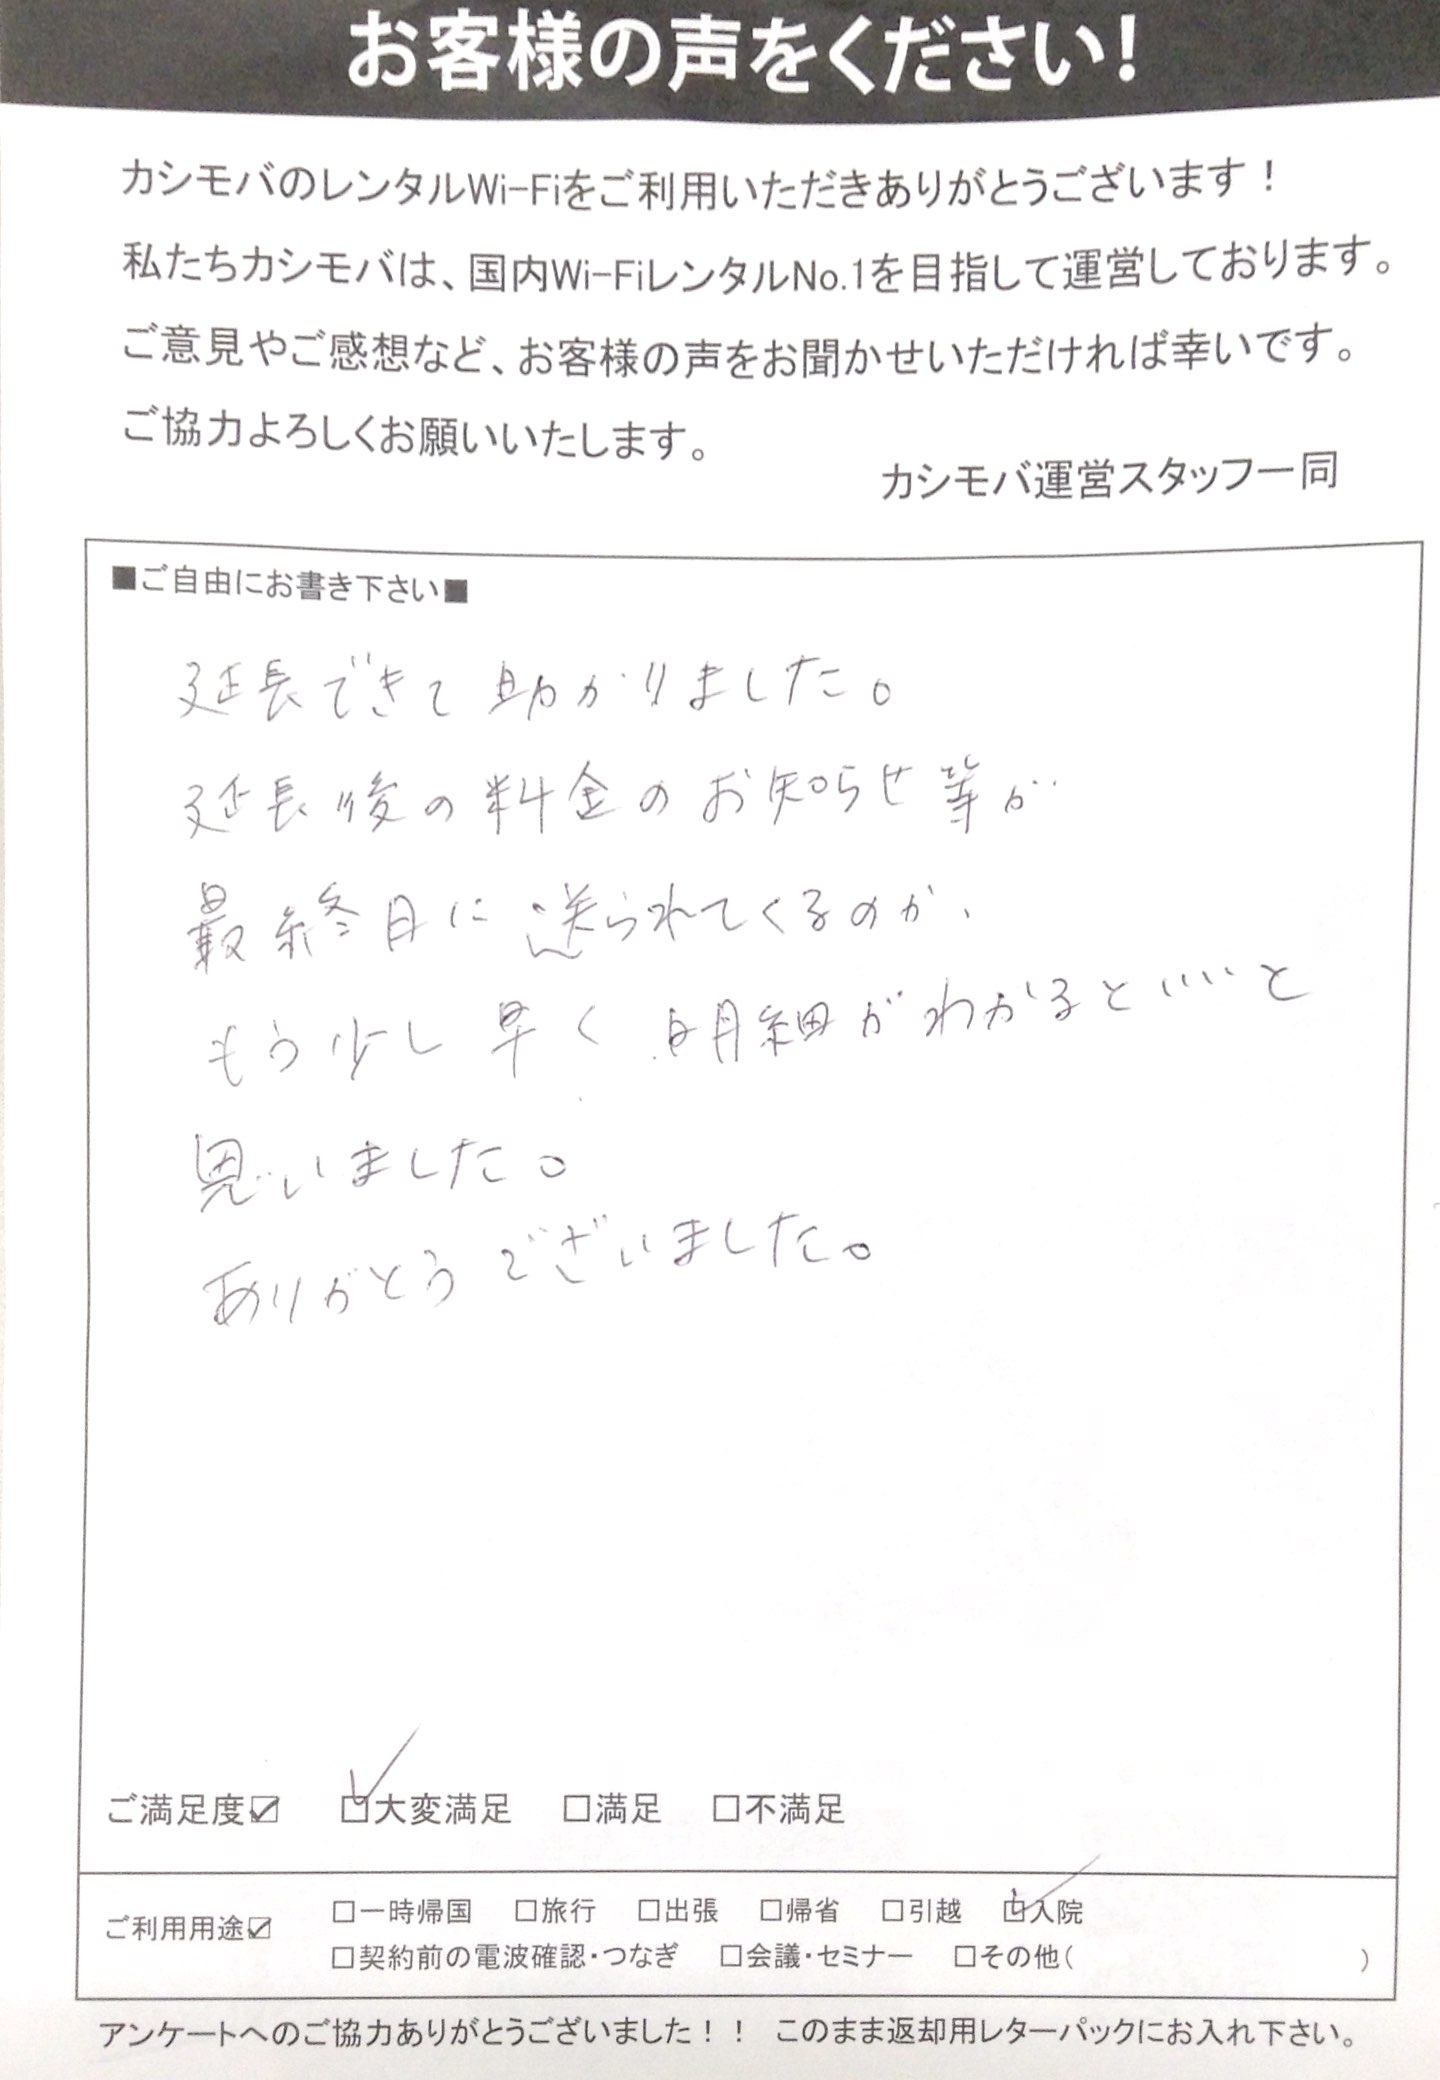 お客様の声をください!
カシモバのレンタルWi-Fiをご利用いただきありがとうございます！
私たちカシモバは、国内Wi-FiレンタルNo.1を目指して運営しております。
ご意見やご感想など、お客様の声をお聞かせいただければ幸いです。
ご協力よろしくお願いいたします。
カシモバ運営スタッフ一同
■ご自由にお書き下さい■
延長できて助かりました。
延長後の料金のお知らせ等が
最終日に送られてくるのが、
もう少し早く明細がわかるといいと
思いました。
ありがとうございました。
ご満足度☑ ☑大変満足 □満足 □不満足
ご利用用途☑ □一時帰国 □旅行 □出張 □帰省 □引越 ☑入院
□契約前の電波確認・つなぎ □会議・セミナー □その他( )
アンケートへのご協力ありがとうございました！！ このまま返却用レターパックにお入れ下さい。